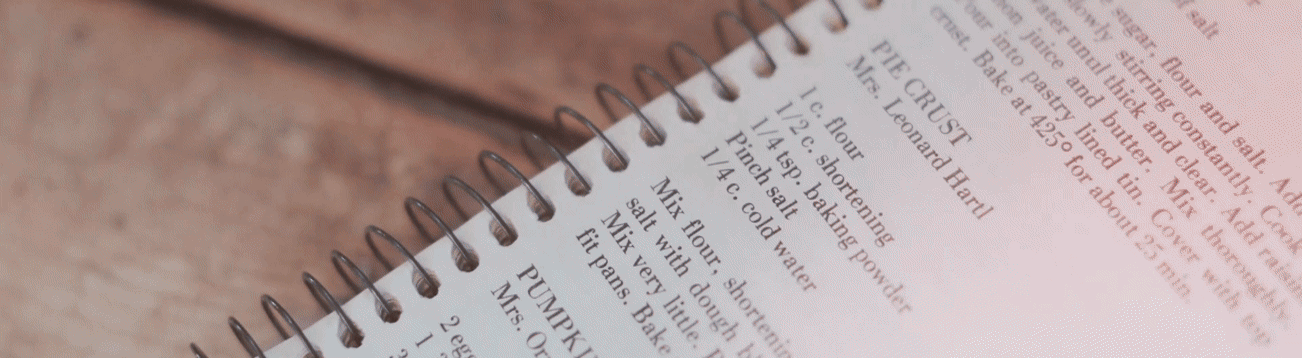 of salt
sugar, flour and salt. Add
slowly stirring constantly. Cook
water until thick and clear. Add
juice and butter. Mix thoroughly.
into pastry lined tin. Cover with top
crust. Bake at 425° for about 25 min.
PIE CRUST
Mrs. Leonard Hartl
1 c. flour
1/2 c. shortening
1/4 tsp. baking powder
Pinch salt
1/4 c. cold water
Mix flour,
salt with dough
Mix very little.
fit pans. Bake
Mrs.
2
1